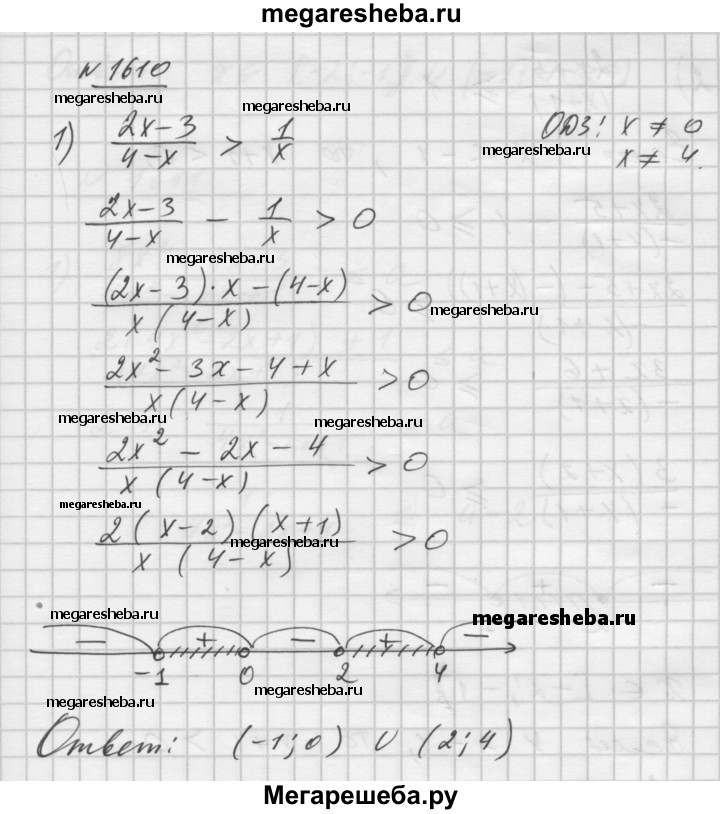 megaresheba.ru
N 1610
megaresheba.ru megaresheba.ru
1) (2x-3)/(4-x) > 1/x ОДЗ: x ≠ 0
megaresheba.ru
x ≠ 4.
(2x-3)/(4-x) - 1/x > 0
megaresheba.ru
((2x-3)·x-(4-x))/(x(4-x)) > 0
megaresheba.ru
(2x²-3x-4+x)/(x(4-x)) > 0
megaresheba.ru megaresheba.ru
(2x²-2x-4)/(x(4-x)) > 0
megaresheba.ru
(2(x-2)(x+1))/(x(4-x)) > 0
megaresheba.ru
megaresheba.ru megaresheba.ru
- + - + -
-1 0 2 4
megaresheba.ru megaresheba.ru
Ответ: (-1;0) ∪ (2;4)
Мегарешеба.ру